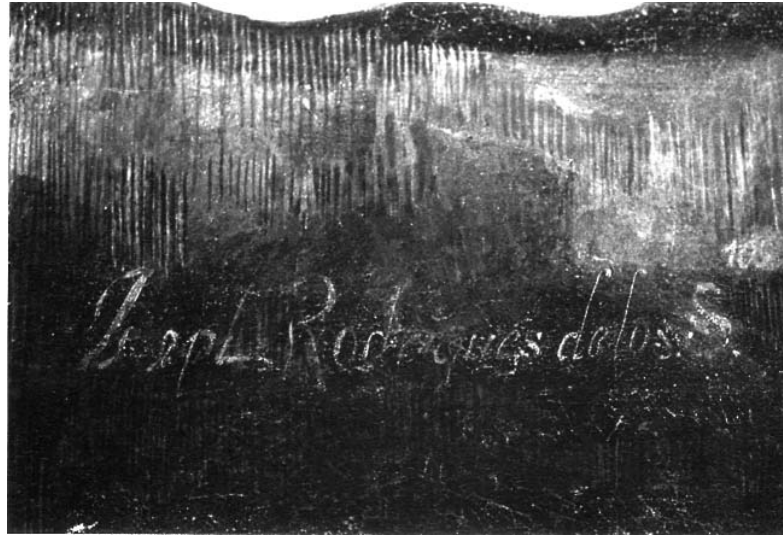 Joseph Rodriguez de los S.